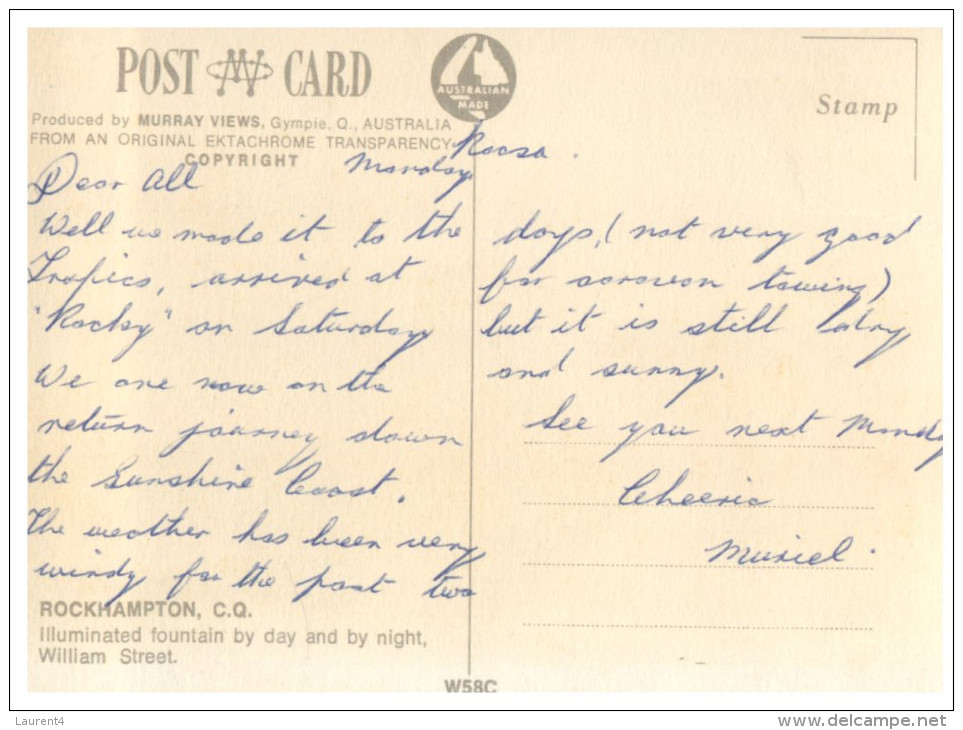 POST CARD
AUSTRALIAN
MADE
Stamp
Produced by MURRAY VIEWS, Gympie, Q., AUSTRALIA
FROM AN ORIGINAL EKTACHROME TRANSPARENCY
COPYRIGHT
Monday
Dear All
Well we made it to the
Tropics, arrived at
"Rocky" on Saturday
We are now on the
return journey down
the Sunshine Coast.
The weather has been very
windy for the past two
days, (not very good
for caravan towing)
but it is still dry
and sunny.
See you next Monday
Cheerio
Muriel.
ROCKHAMPTON, C.Q.
Illuminated fountain by day and by night,
William Street.
W58C
Laurent4
www.delcampe.net